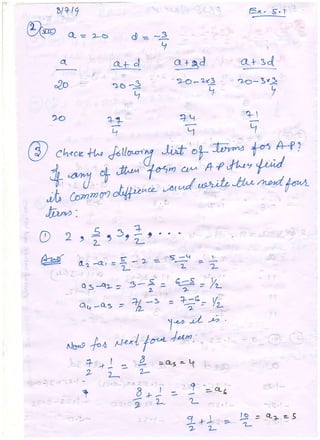 8/7/19 Ex. 5.1
② a = 20 d = -3/4
a a+d a+2d a+3d
20 20-3/4 20-2×3/4 20-3×3/4
20 77/4 74/4 71/4
③ Check the following list of terms for A-P?
If any of them form an A P then find
its common difference and write the next four
terms:
① 2, 5/2, 3, 7/2, ...
a2-a1 = 5/2 - 2 = 5-4/2 = 1/2
a3-a2 = 3-5/2 = 6-5/2 = 1/2
a4-a3 = 7/2-3 = 7-6/2 = 1/2
yes it is.
Now for next four term.
7/2 + 1/2 = 8/2 = a5 = 4
8/2 + 1/2 = 9/2 = a6
9/2 + 1/2 = 10/2 = a7 = 5